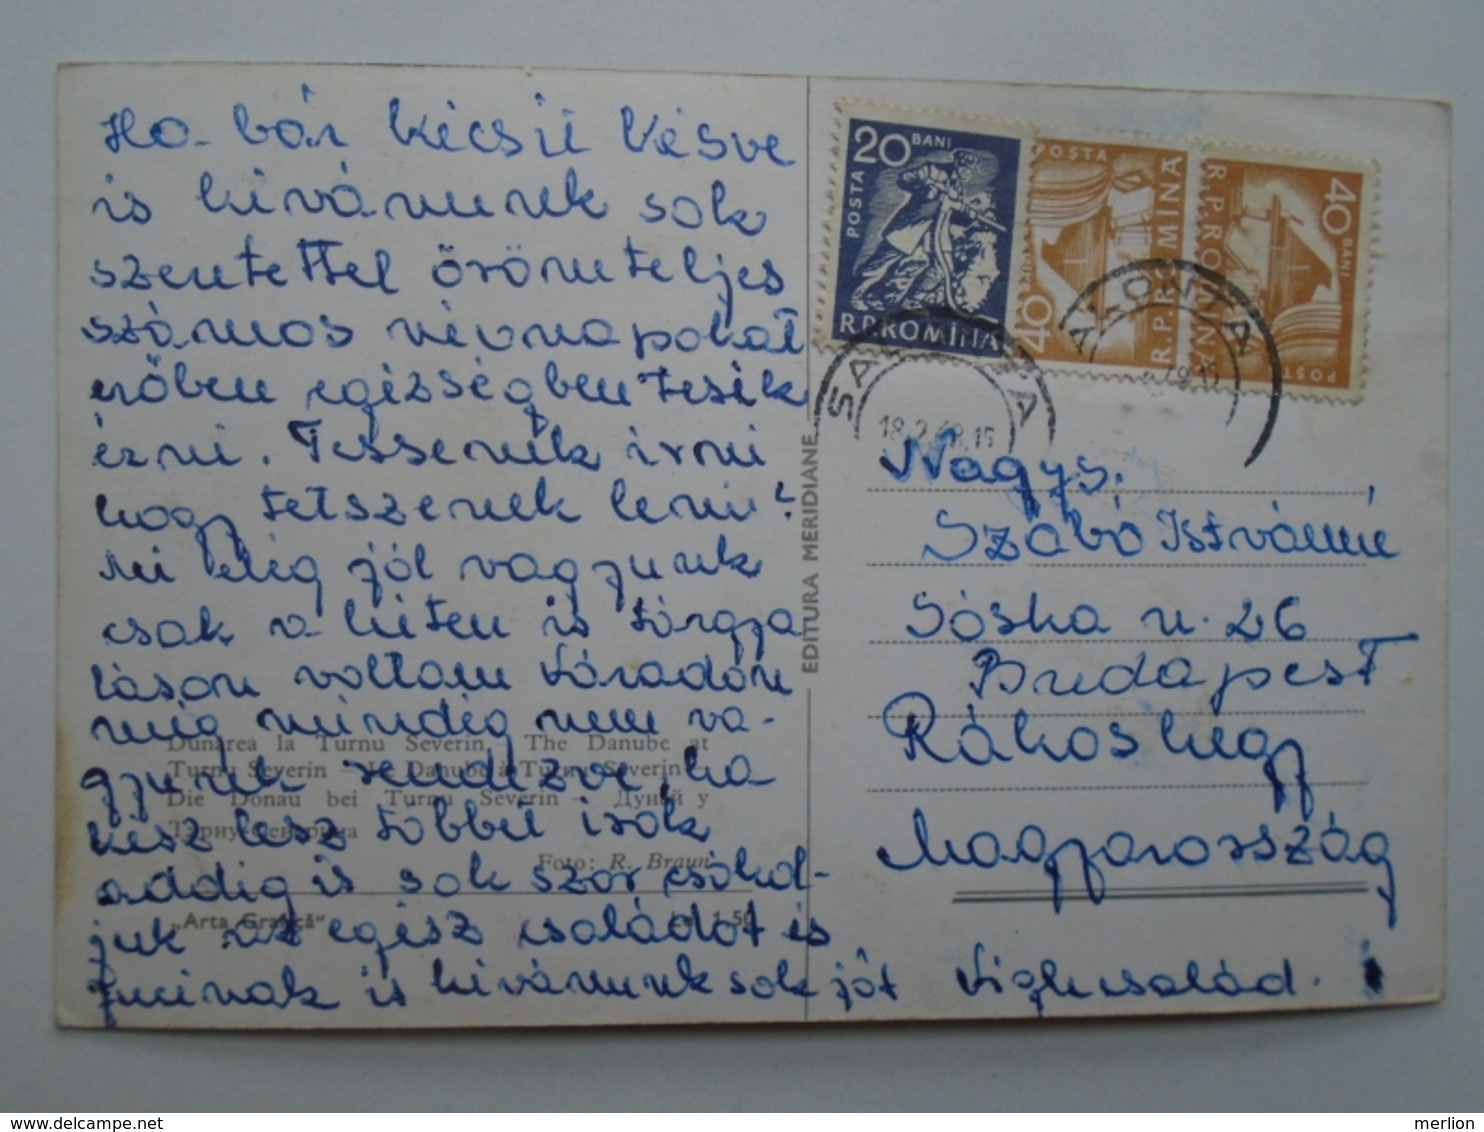 Ha-bár kécsit késve
is kivánunk sok
szeretettel örömteljes
számos névnapokat
erőben egiszségben tesik
érni. Tessenek irni
hogy tetszenek lenni?
mi elég jól vagyunk
csak a héten is tárgya
láson voltam Váradon
még mindig nem va-
gyunk rendezve, ha
kész lesz többet irok
addig is sok szor csókol-
juk az egész családot és
Jucinak is kivánunk sok jót Vighcsalád.
Dunărea la Turnu Severin – The Danube at
Turnu Severin – Le Danube à Turnu Severin –
Die Donau bei Turnu Severin – Дунай у
Турну-Северина
Foto: R. Braun
„Arta Grafică”
Lei 1,50
EDITURA MERIDIANE
20 BANI
POSTA
R.P.ROMÎNA
POSTA
40 BANI
R.P.ROMÎNA
40 BANI
POSTA
R.P.ROMÎNA
SALONTA
18.2.68.15
SALONTA
Nagys.
Szabó Istvánné
Sóska u. 26
Budapest
Rákoshegy
Magyarország
merlion